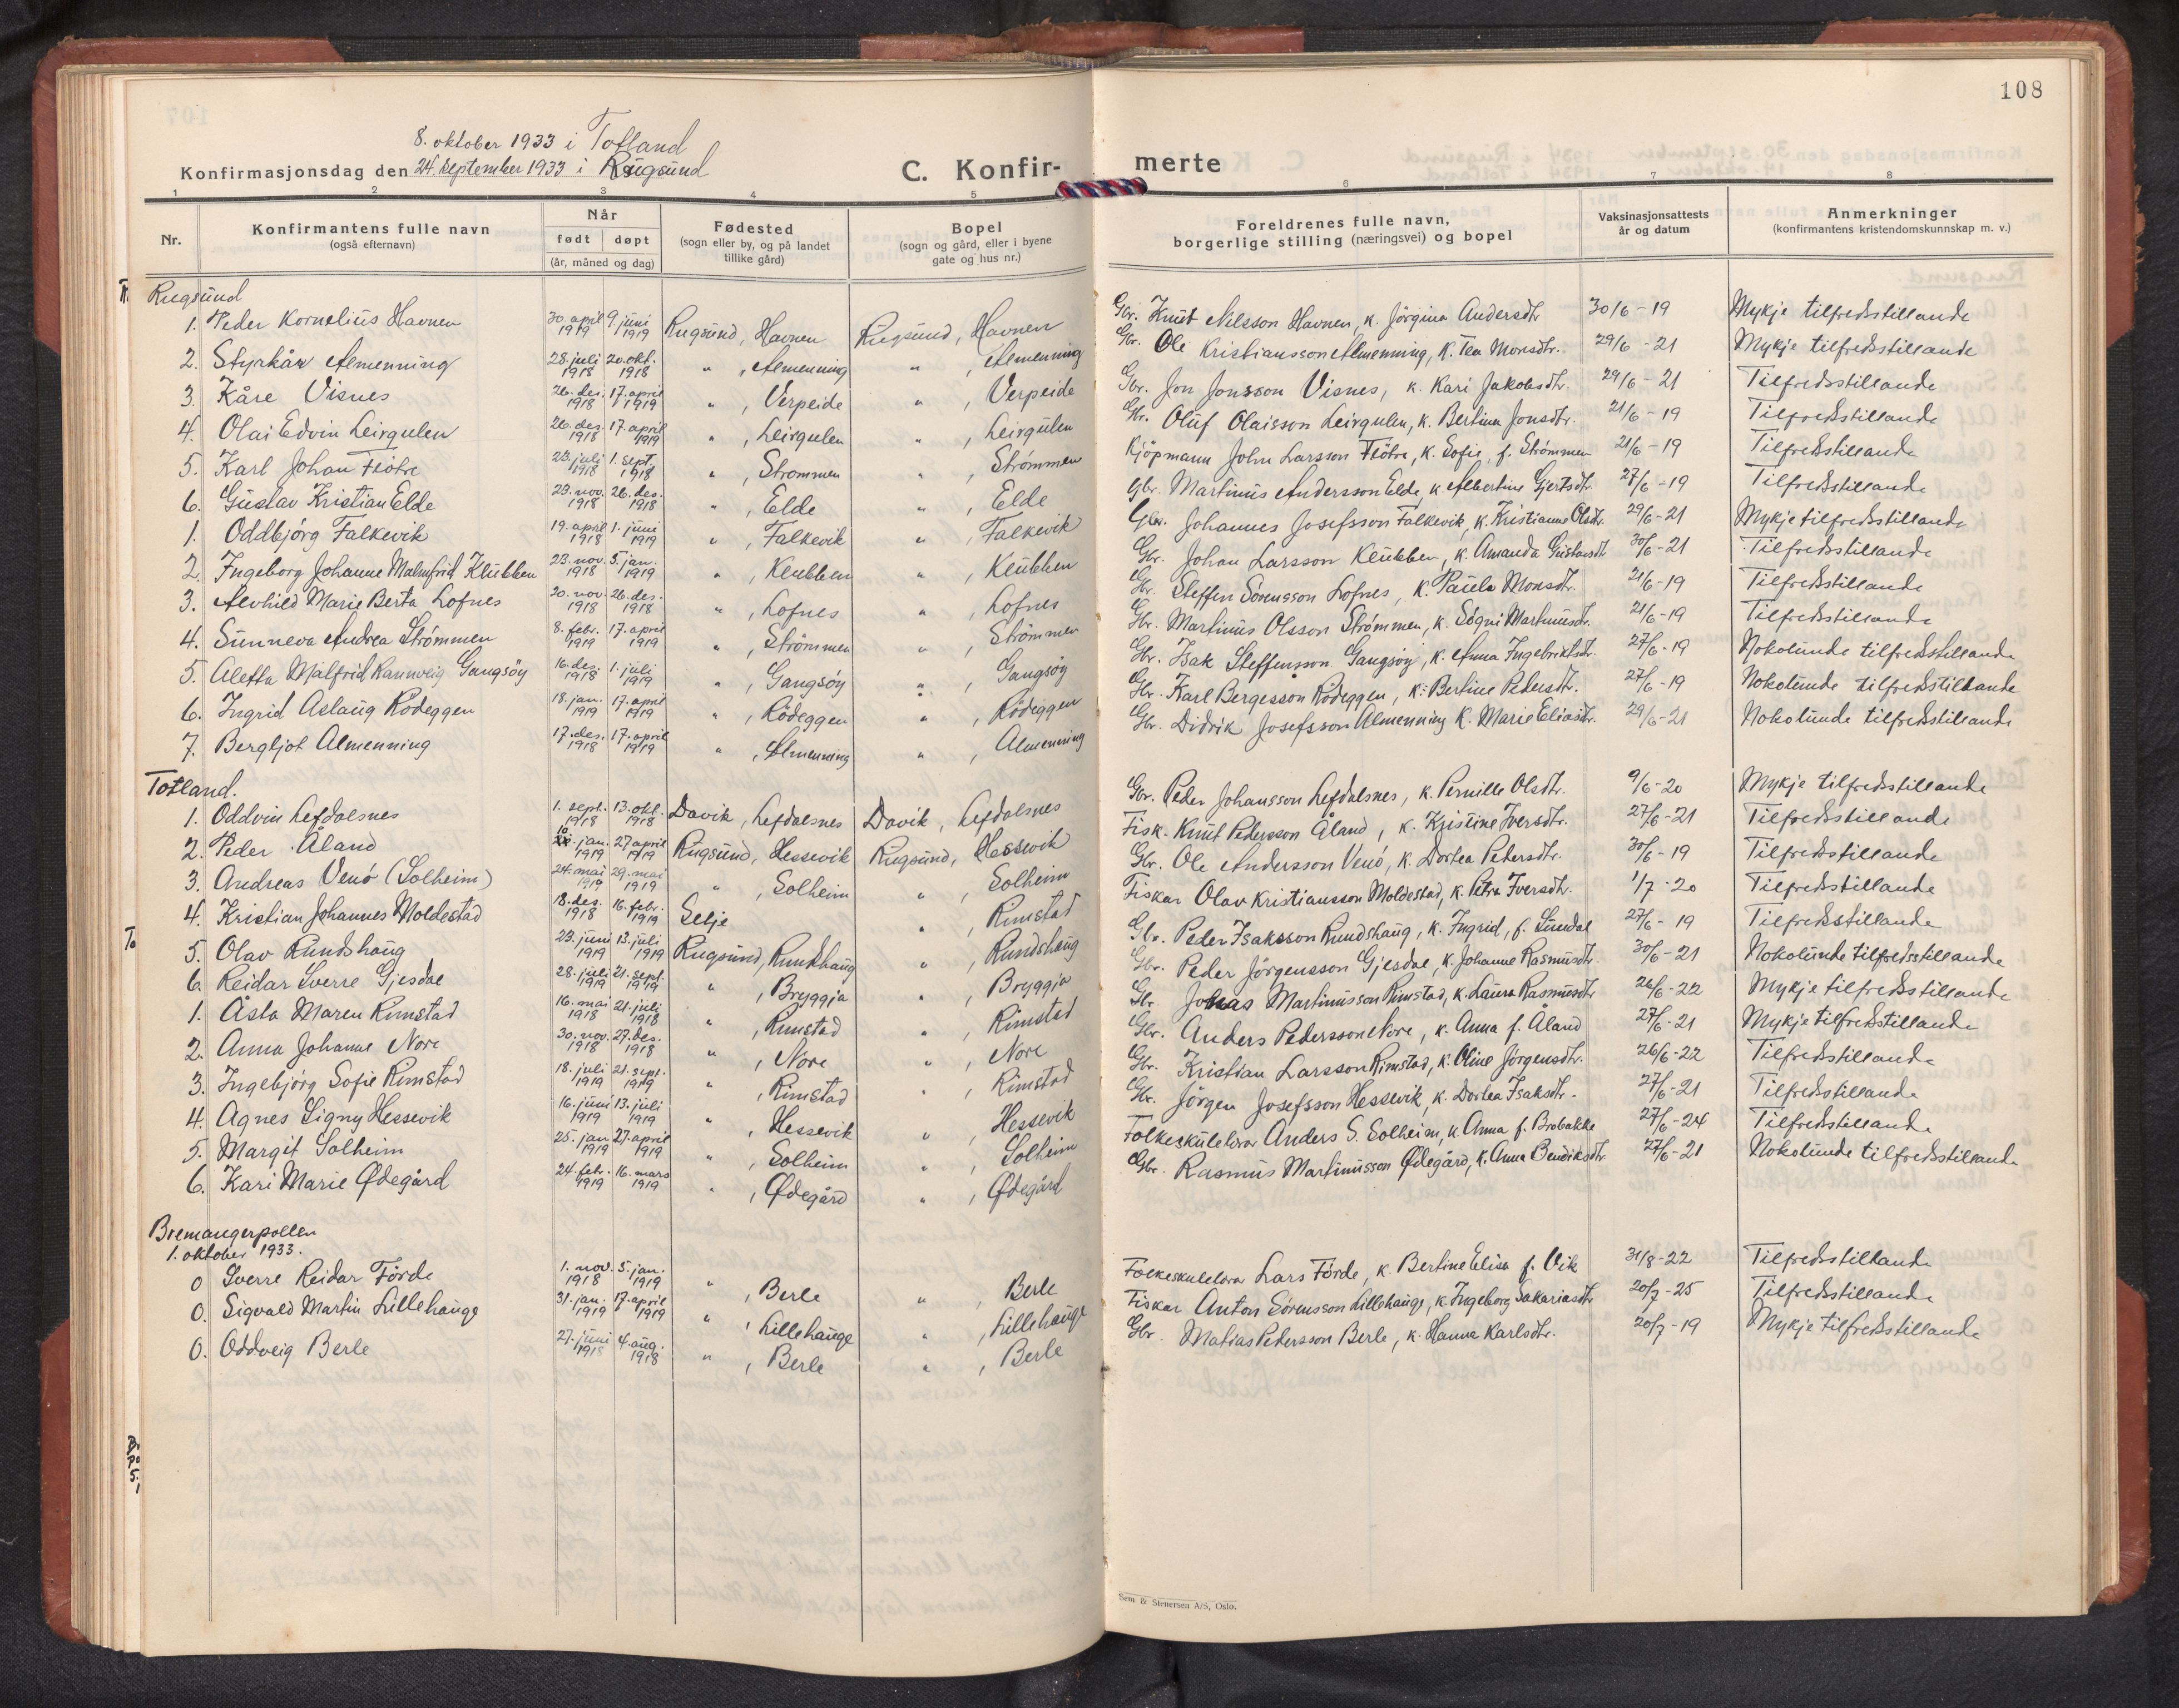 108
8. oktober 1933 i Totland
Konfirmasjonsdag den 24. september 1933 i Rugsund
C. Konfir-
merte
1 2 3 4 5 6 7 8
Nr.
Konfirmantens fulle navn
(også efternavn)
Når
født døpt
(år, måned og dag)
Fødested
(sogn eller by, og på landet
tillike gård)
Bopel
(sogn og gård, eller i byene
gate og hus nr.)
Foreldrenes fulle navn,
borgerlige stilling (næringsvei) og bopel
Vaksinasjonsattests
år og datum
Anmerkninger
(konfirmantens kristendomskunnskap m. v.)
Rugsund
1. Peder Kornelius Havnen 30. april 1919 9. juni 1919 Rugsund, Havnen Rugsund, Havnen Gbr. Knut Nilsson Havnen, k. Jörgina Andersdtr. 30/6-19 Mykje tilfredsstillande
2. Styrkår Almenning 28. juli 1918 20. okt. 1918 " , Almenning " , Almenning Gbr. Ole Kristiansson Almenning, k. Tea Monsdtr. 29/6-21 Mykje tilfredsstillande
3. Kåre Visnes 26. des. 1918 17. april 1919 " , Verpeide " , Verpeide Gbr. Jon Jonsson Visnes, k. Kari Jakobsdtr. 29/6-21 Tilfredsstillande
4. Olai Edvin Leirgulen 26. des. 1918 17. april 1919 " , Leirgulen " , Leirgulen Gbr. Oluf Olaisson Leirgulen, k. Bertina Jonsdtr. 21/6-19 Tilfredsstillande
5. Karl Johan Flötre 23. juli 1918 1. sept. 1918 " , Strömmen " , Strömmen Kjöpmann John Larsson Flötre, k. Sofie, f. Strömmen 21/6-19 Tilfredsstillande
6. Gustav Kristian Elde 23. nov. 1918 26. des. 1918 " , Elde " , Elde Gbr. Martinus Andersson Elde, k. Albertine Gjertsdtr. 27/6-19 Tilfredsstillande
1. Oddbjörg Falkevik 19. april 1918 1. juni 1919 " , Falkevik " , Falkevik Gbr. Johannes Josefsson Falkevik, k. Kristianne Olsdtr. 29/6-21 Mykje tilfredsstillande
2. Ingeborg Johanne Malmfrid Klubben 23. nov. 1918 5. jan. 1919 " , Klubben " , Klubben Gbr. Johan Larsson Klubben, k. Amanda Gustavsdtr 30/6-21 Tilfredsstillande
3. Alvhild Marie Berta Lofnes 20. nov. 1918 26. des. 1918 " , Lofnes " , Lofnes Gbr. Steffen Sörensson Lofnes, k. Paula Monsdtr. 21/6-19 Tilfredsstillande
4. Sunneva Andrea Strömmen 8. febr. 1919 17. april 1919 " , Strömmen " , Strömmen Gbr. Martinus Olsson Strömmen, k. Sögni Martinusdtr. 21/6-19 Tilfredsstillande
5. Aletta Malfrid Rannveig Gangsöy 16. des. 1918 1. juli 1919 " , Gangsöy " , Gangsöy Gbr. Isak Steffensson Gangsöy, k. Anna Ingebriktsdtr. 27/6-19 Nokolunde tilfredsstillande
6. Ingrid Aslaug Rödeggen 18. jan. 1919 17. april 1919 " , Rödeggen " , Rödeggen Gbr. Karl Bergesson Rödeggen, k. Bertine Pedersdtr. 27/6-19 Nokolunde tilfredsstillande
7. Bergljot Almenning 17. des. 1918 17. april 1919 " , Almenning " , Almenning Gbr. Didrik Josefsson Almenning k. Marie Eliasdtr. 29/6-21 Nokolunde tilfredsstillande
Totland.
1. Oddvin Lefdalsnes 1. sept. 1918 13. okt. 1918 Davik, Lefdalsnes Davik, Lefdalsnes Gbr. Peder Johansson Lefdalsnes, k. Pernille Olsdtr. 9/6-20 Mykje tilfredsstillande
2. Peder Åland 10. jan. 1919 27. april 1919 Rugsund, Hessevik Rugsund, Hessevik Fisk. Knut Pedersson Åland, k. Kristine Iversdtr. 27/6-21 Tilfredsstillande
3. Andreas Venö (Solheim) 24. mai 1919 29. mai 1919 " , Solheim " , Solheim Gbr. Ole Andersson Venö, k. Dortea Petersdtr. 30/6-19 Tilfredsstillande
4. Kristian Johannes Moldestad 18. des. 1918 16. febr. 1919 Selje " , Rimstad Fiskar Olav Kristiansson Moldestad, k. Petra Iversdtr. 1/7-20 Tilfredsstillande
5. Olav Rundshaug 23. juni 1919 13. juli 1919 Rugsund, Rundshaug " , Rundshaug Gbr. Peder Isaksson Rundshaug, k. Ingrid, f. Sundal 27/6-19 Tilfredsstillande
6. Reidar Sverre Gjesdal 28. juli 1919 21. sept. 1919 " , Bryggja " , Bryggja Gbr. Peder Jörgensson Gjesdal, k. Johanne Rasmusdtr. 30/6-21 Nokolunde tilfredsstillande
1. Åsta Maren Rimstad 16. mai 1918 21. juli 1918 " , Rimstad " , Rimstad Gbr. Johas Martinusson Rimstad, k. Laura Rasmusdtr 26/6-22 Mykje tilfredsstillande
2. Anna Johanne Nore 30. nov. 1918 27. des. 1918 " , Nore " , Nore Gbr. Anders Pedersson Nore, k. Anna f. Åland 27/6-21 Mykje tilfredsstillande
3. Ingebjörg Sofie Rimstad 18. juli 1919 21. sept. 1919 " , Rimstad " , Rimstad Gbr. Kristian Larsson Rimstad, k. Oline Jörgensdtr. 26/6-22 Tilfredsstillande
4. Agnes Signy Hessevik 16. juni 1919 13. juli 1919 " , Hessevik " , Hessevik Gbr. Jörgen Josefsson Hessevik, k. Dortea Isaksdtr. 27/6-21 Tilfredsstillande
5. Margit Solheim 25. jan 1919 27. april 1919 " , Solheim " , Solheim Folkeskulelærar Anders S. Solheim, k. Anna f. Brobakke 27/6-24 Tilfredsstillande
6. Kari Marie Ødegård 24. febr. 1919 16. mars 1919 " , Ødegård " , Ødegård Gbr. Rasmus Martinusson Ødegård, k. Anna Bendiksdtr. 27/6-21 Nokolunde tilfredsstillande
Bremangerpollen
1. oktober 1933.
0 Sverre Reidar Förde 1. nov. 1918 5. jan. 1919 " , Berle " , Berle Folkeskulelærar Lars Förde, k. Bertine Elisa f. Vik 31/8-22 Tilfredsstillande
0. Sigvald Martin Lillehauge 31. jan. 1919 17. april 1919 " , Lillehauge " , Lillehauge Fiskar Anton Sörensson Lillehauge, k. Ingeborg Sakariasdtr 20/7-25 Tilfredsstillande
0. Oddveig Berle 27. juni 1918 4. aug. 1918 " , Berle " , Berle Gbr. Matias Pedersson Berle, k. Hanna Karlsdtr. 20/7-19 Mykje tilfredsstillande
Sem & Stenersen A/S, Oslo.